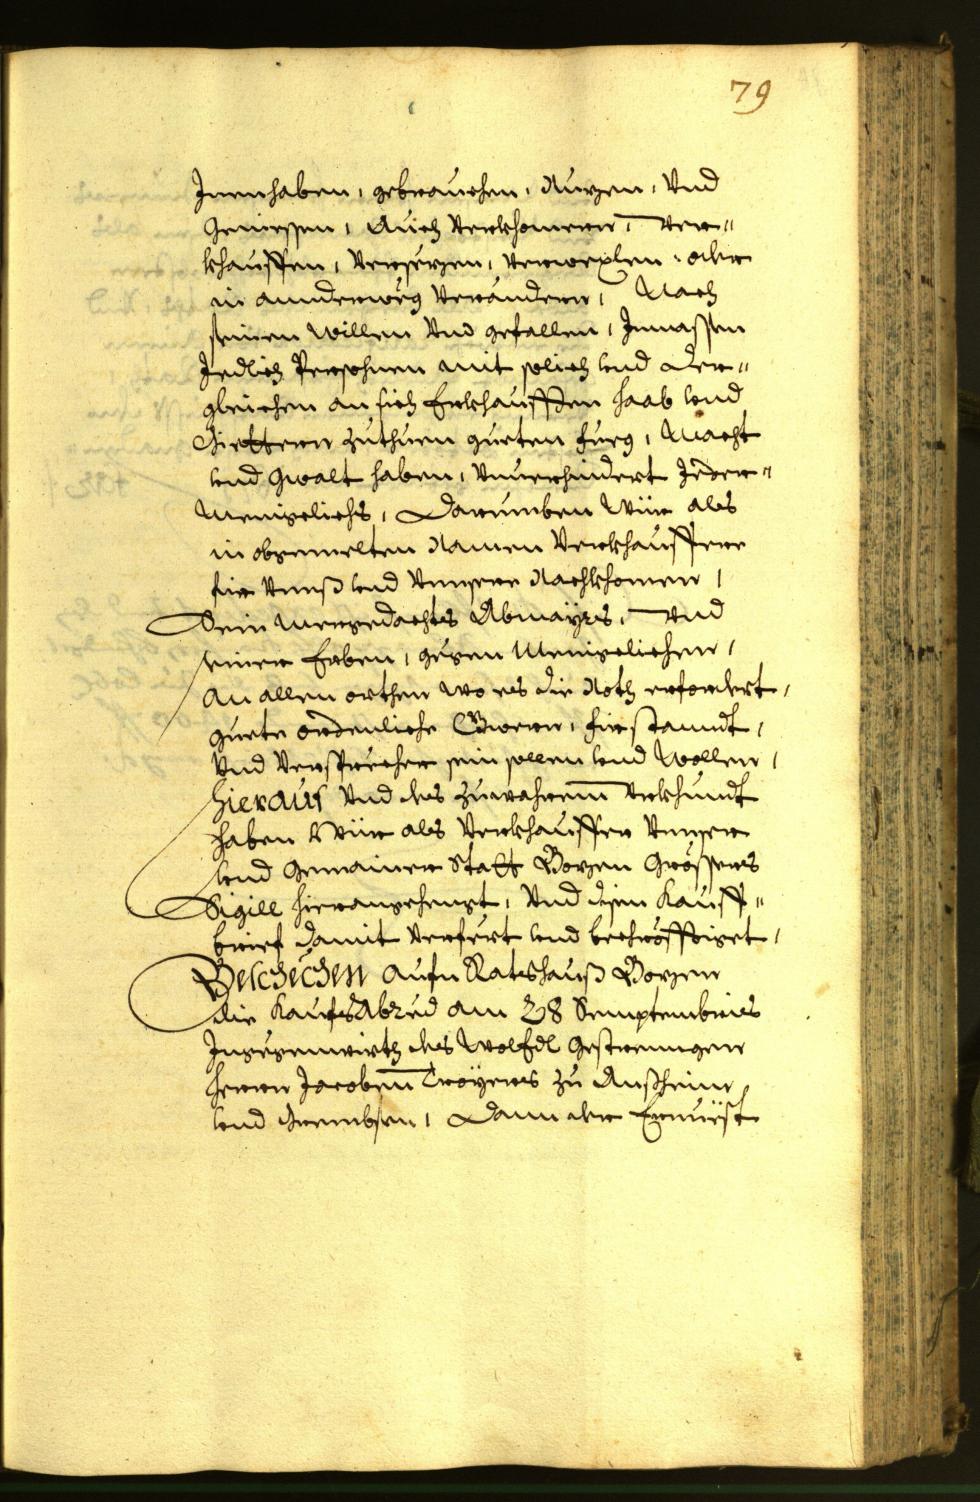 79
Innenhaben, gebrauchen, Nuzen, Vnd
Geniessen, Auch Verkhomern, ver=
khauffen, Versezen, verwexlen, oder
in annderweeg Verändern, Nach
seinen willen Vnd gefallen, Inmassen
Jedlich Persohnen mit solich vnd der=
gleichen an sich Erkhaufften haab vnd
Güettern zuthuen gueten fueg, Macht
vnd Gwalt haben, Vnuerhindert Jeder=
Menigelichs, Darumben Wür als
in obgemelten Namen Verkhauffere
für Vnnß vnd Vnnsere Nachkhomen,
Sein Mergedachts Abmayrs, Vnd
seiner Erben, gegen Menigelichen,
an allen orthen wo es die Noth erfordert,
guete ordenliche Gweren, fürstanndt,
Vnd Versprecher sein sollen vnd Wollen,
Hieraus Vnd des zuwahrem Vrkhundt
haben Wür als Verkhauffer Vnnser
vnd Gemainer Statt Bozen Grössers
Sigill hierangehengt, Vnd disen Kauff=
brief damit Verfert vnd becröfftiget,
Beschechen aufm Rateshauß Bozen
die Kaufs Abred am 28 Septembris
Ingegenwirth des Woledl Gestrenngen
Herrn Jacoben Troyers zu
vnd Dann der Ernuest